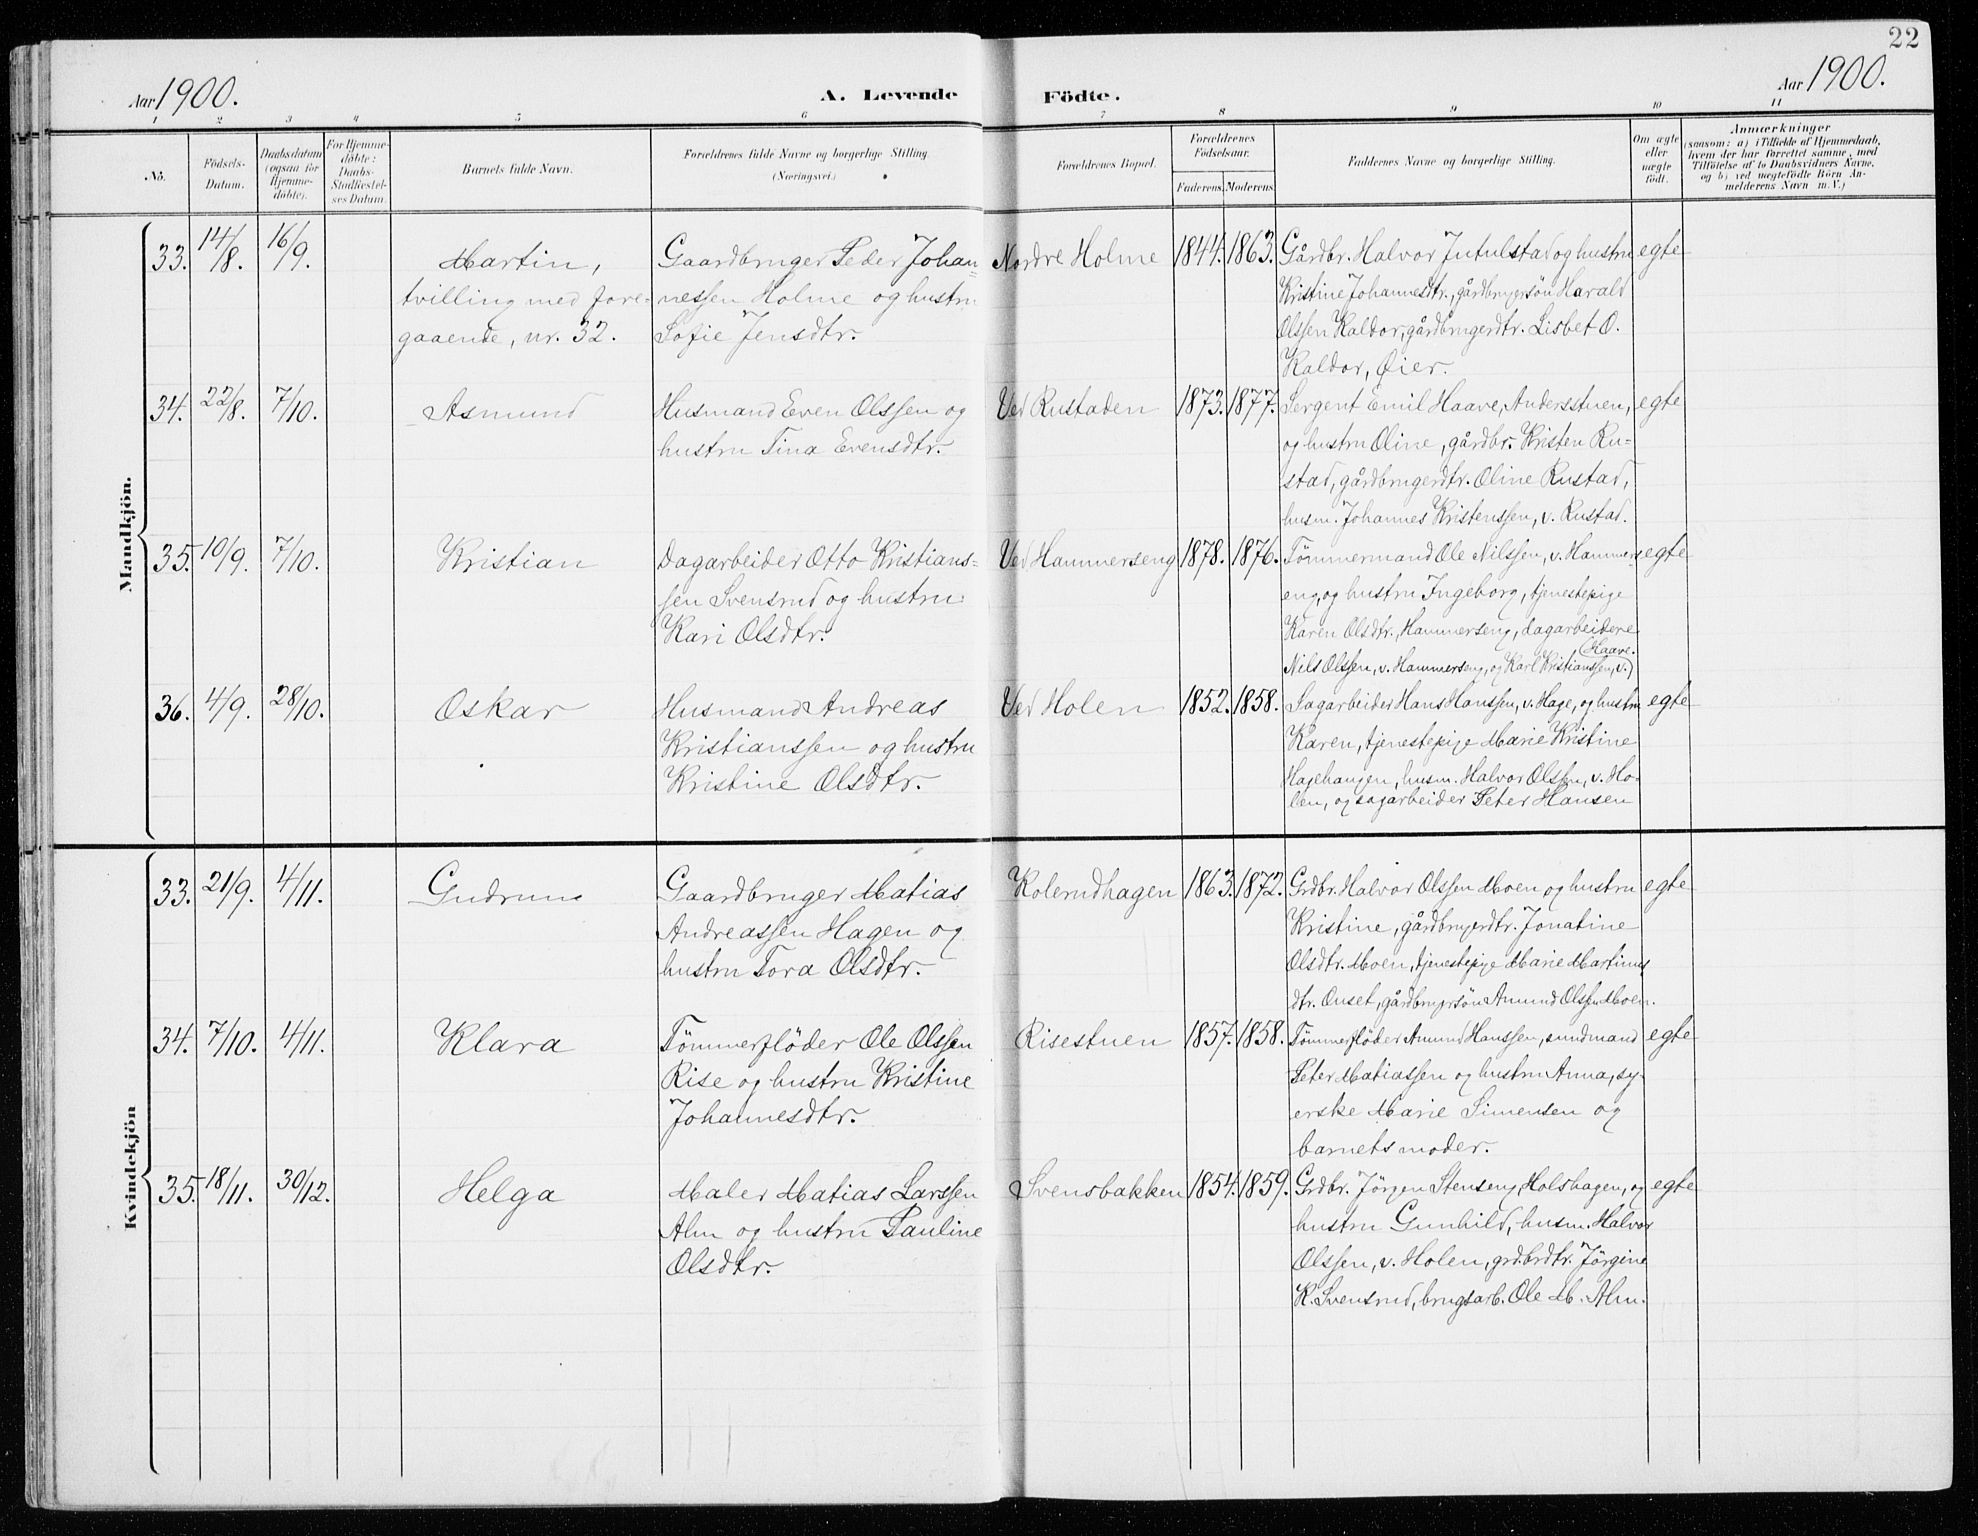 22
Aar 1900.
A. Levende Födte.
Aar 1900.
1 2 3 4 5 6 7 8 9 10 11
No.
Födsels-
Datum.
Daabsdatum
(ogsaa for
Hjemme-
döbte).
For Hjemme-
döbte:
Daabs-
Stadfæstel-
ses Datum.
Barnets fulde Navn.
Forældrenes fulde Navne og borgerlige Stilling.
(Næringsvei.)
Forældrenes Bopæl.
Forældrenes
Födselsaar.
Faderens. Moderens.
Faddernes Navne og borgerlige Stilling.
Om ægte
eller
uægte
födt.
Anmærkninger
(saasom: a) i Tilfælde af Hjemmedaab,
hvem der har forrettet samme, med
Tilföielse af to Daabsvidners Navne,
og b) ved uægtefödte Börn An-
melderens Navn m. V.)
Mandkjön.
33. 14/8. 16/9.
Martin,
tvilling med fore-
gaaende, nr. 32.
Gaardbruger Peder Johan-
nessen Holme og hustru
Sofie Jensdtr.
Nordre Holme
1844. 1863.
Gårdbr. Halvor Jutulstad og hustru
Kristine Johannesdtr., gårdbrugersön Harald
Olssen Kaldor, gårdbrugerdtr. Lisbet O.
Kaldor, Öier.
egte
34. 22/8. 7/10.
Asmund
Husmand Even Olssen og
hustru Tina Evensdtr.
Ved Rustaden
1873. 1877.
Sergent Emil Haave, Andersstuen,
og hustru Oline, gårdbr. Kristen Ru-
stad, gårdbrugerdtr. Oline Rustad,
husm. Johannes Kristenssen, v. Rustad.
egte
35. 10/9. 7/10.
Kristian
Dagarbeider Otto Kristians-
sen Svensrud og hustru
Kari Olsdtr.
Ved Hammerseng
1878. 1876.
Tömmermand Ole Nilssen, v. Hammers-
eng, og hustru Ingeborg, tjenestepige
Karen Olsdtr., Hammerseng, dagarbeidere
Nils Olssen, v. Hammerseng, og Karl Kristianssen, v.
Haave.
egte
36. 4/9. 28/10.
Oskar
Husmand Andreas
Kristianssen og hustru
Kristine Olsdtr.
Ved Holen
1852. 1858.
Sagarbeider Hans Hanssen, v. Hage, og hustru
Karen, tjenestepige Marie Kristine
Hagehaugen, husm. Halvor Olssen, v. Ho-
len, og sagarbeider Peter Hansen
egte
Kvindekjön
33. 21/9. 4/11.
Gudrun
Gaardbruger Matias
Andreassen Hagen og
hustru Tora Olsdtr.
Kolerudhagen
1863. 1872.
Grdbr. Halvor Olssen Moen og hustru
Kristine, gårdbrugerdtr. Jonatine
Olsdtr. Moen, tjenestepige Marie Martinus
dtr. Onset, gårdbrugersön Amund Olssen Moen.
egte
34. 7/10. 4/11.
Klara
Tömmerflöder Ole Olssen
Rise og hustru Kristine
Johannesdtr.
Risestuen
1857. 1858.
Tömmerflöder Amund Hanssen, sundmand
Peter Matiassen og hustru Anna, sy-
erske Marie Simensen og
barnets moder.
egte
35. 18/11. 30/12.
Helga
Maler Matias Larssen
Alm og hustru Pauline
Olsdtr.
Svensbakken
1854. 1859.
Grdbr. Jörgen Stenseng, Holshagen, og
hustru Gunhild, husm. Halvor
Olssen, v. Holen, grdbrdtr. Jörgine
K. Svensrud, brugsarb. Ole M. Alm.
egte